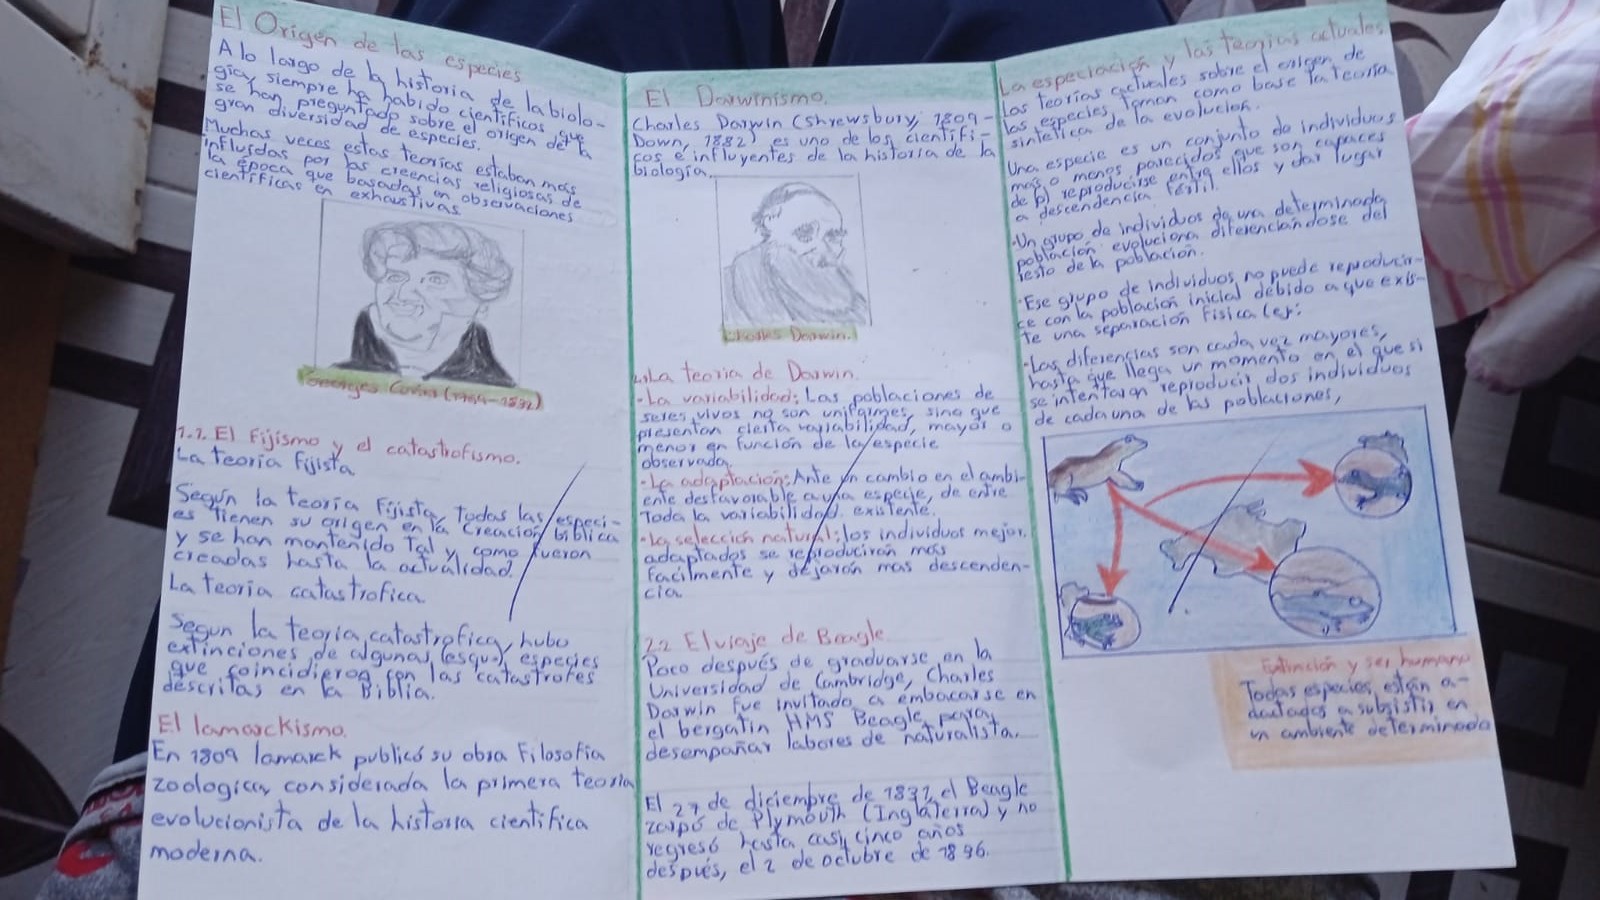 El Origen de las especies
A lo largo de la historia de la biolo-
gía, siempre ha habido científicos que
se han preguntado sobre el origen de la
gran diversidad de especies.
Muchas veces estas teorías estaban más
influidas por las creencias religiosas de
la época que basadas en observaciones
científicas en exhaustivas
Georges
1.1. El Fijismo y el catastrofismo.
La teoría fijista
Según la teoría Fijista, todas las especi-
es tienen su origen en la Creación bíblica
y se han mantenido Tal y como fueron
creadas hasta la actualidad.
La teoría catastrofica.
Segun la teoria catastrofica, hubo
extinciones de algunas especies
que coincidieron con las catastrofes
descritas en la Biblia.
El lamarckismo.
En 1809 lamarck publicó su obra Filosofia
zoologica, considerada la primera teoria
evolucionista de la historia cientifica
moderna.
El Darwinismo.
Charles Darwin (Shrewsbury, 1809-
Down, 1882) es uno de los cientifi-
cos e influyentes de la historia de la
biología.
Charles Darwin.
La teoria de Darwin.
-La variabilidad: Las poblaciones de
seres vivos no son uniformes, sino que
presentan cierta variabilidad, mayor o
menor en función de la especie
observada.
-La adaptación: Ante un cambio en el ambi-
ente desfavorable a una especie, de entre
Toda la variabilidad existente.
-La selección natural: los individuos mejor
adaptados se reproducirán más
facilmente y dejarán mas descenden-
cia.
2.2 El viaje de Beagle
Poco después de graduarse en la
Universidad de Cambridge, Charles
Darwin fue invitado a embacarse en
el bergatin HMS Beagle, para
desempañar labores de naturalista.
El 27 de diciembre de 1831, el Beagle
zarpó de Plymouth (Inglaterra) y no
regresó hasta casi cinco años
después, el 2 de octubre de 1836.
La especiación y las teorías actuales
Las teorías actuales sobre el origen de
las especies toman como base la teoría
sintética de la evolución.
Una especie es un conjunto de individuos
mas o menos parecidos que son capaces
de reproducirse entre ellos y dar lugar
a descendencia fértil.
·Un grupo de individuos de una determinada
población evoluciona diferenciándose del
resto de la población.
·Ese grupo de individuos no puede reproducir-
se con la población inicial debido a que exis-
te una separación fisica (ej:
·Las diferencias son cada vez mayores,
hasta que llega un momento en el que si
se intentaran reproducir dos individuos
de cada una de las poblaciones,
Extinción y ser humano
Todas especies están a-
a subsistir en
un ambiente determinado